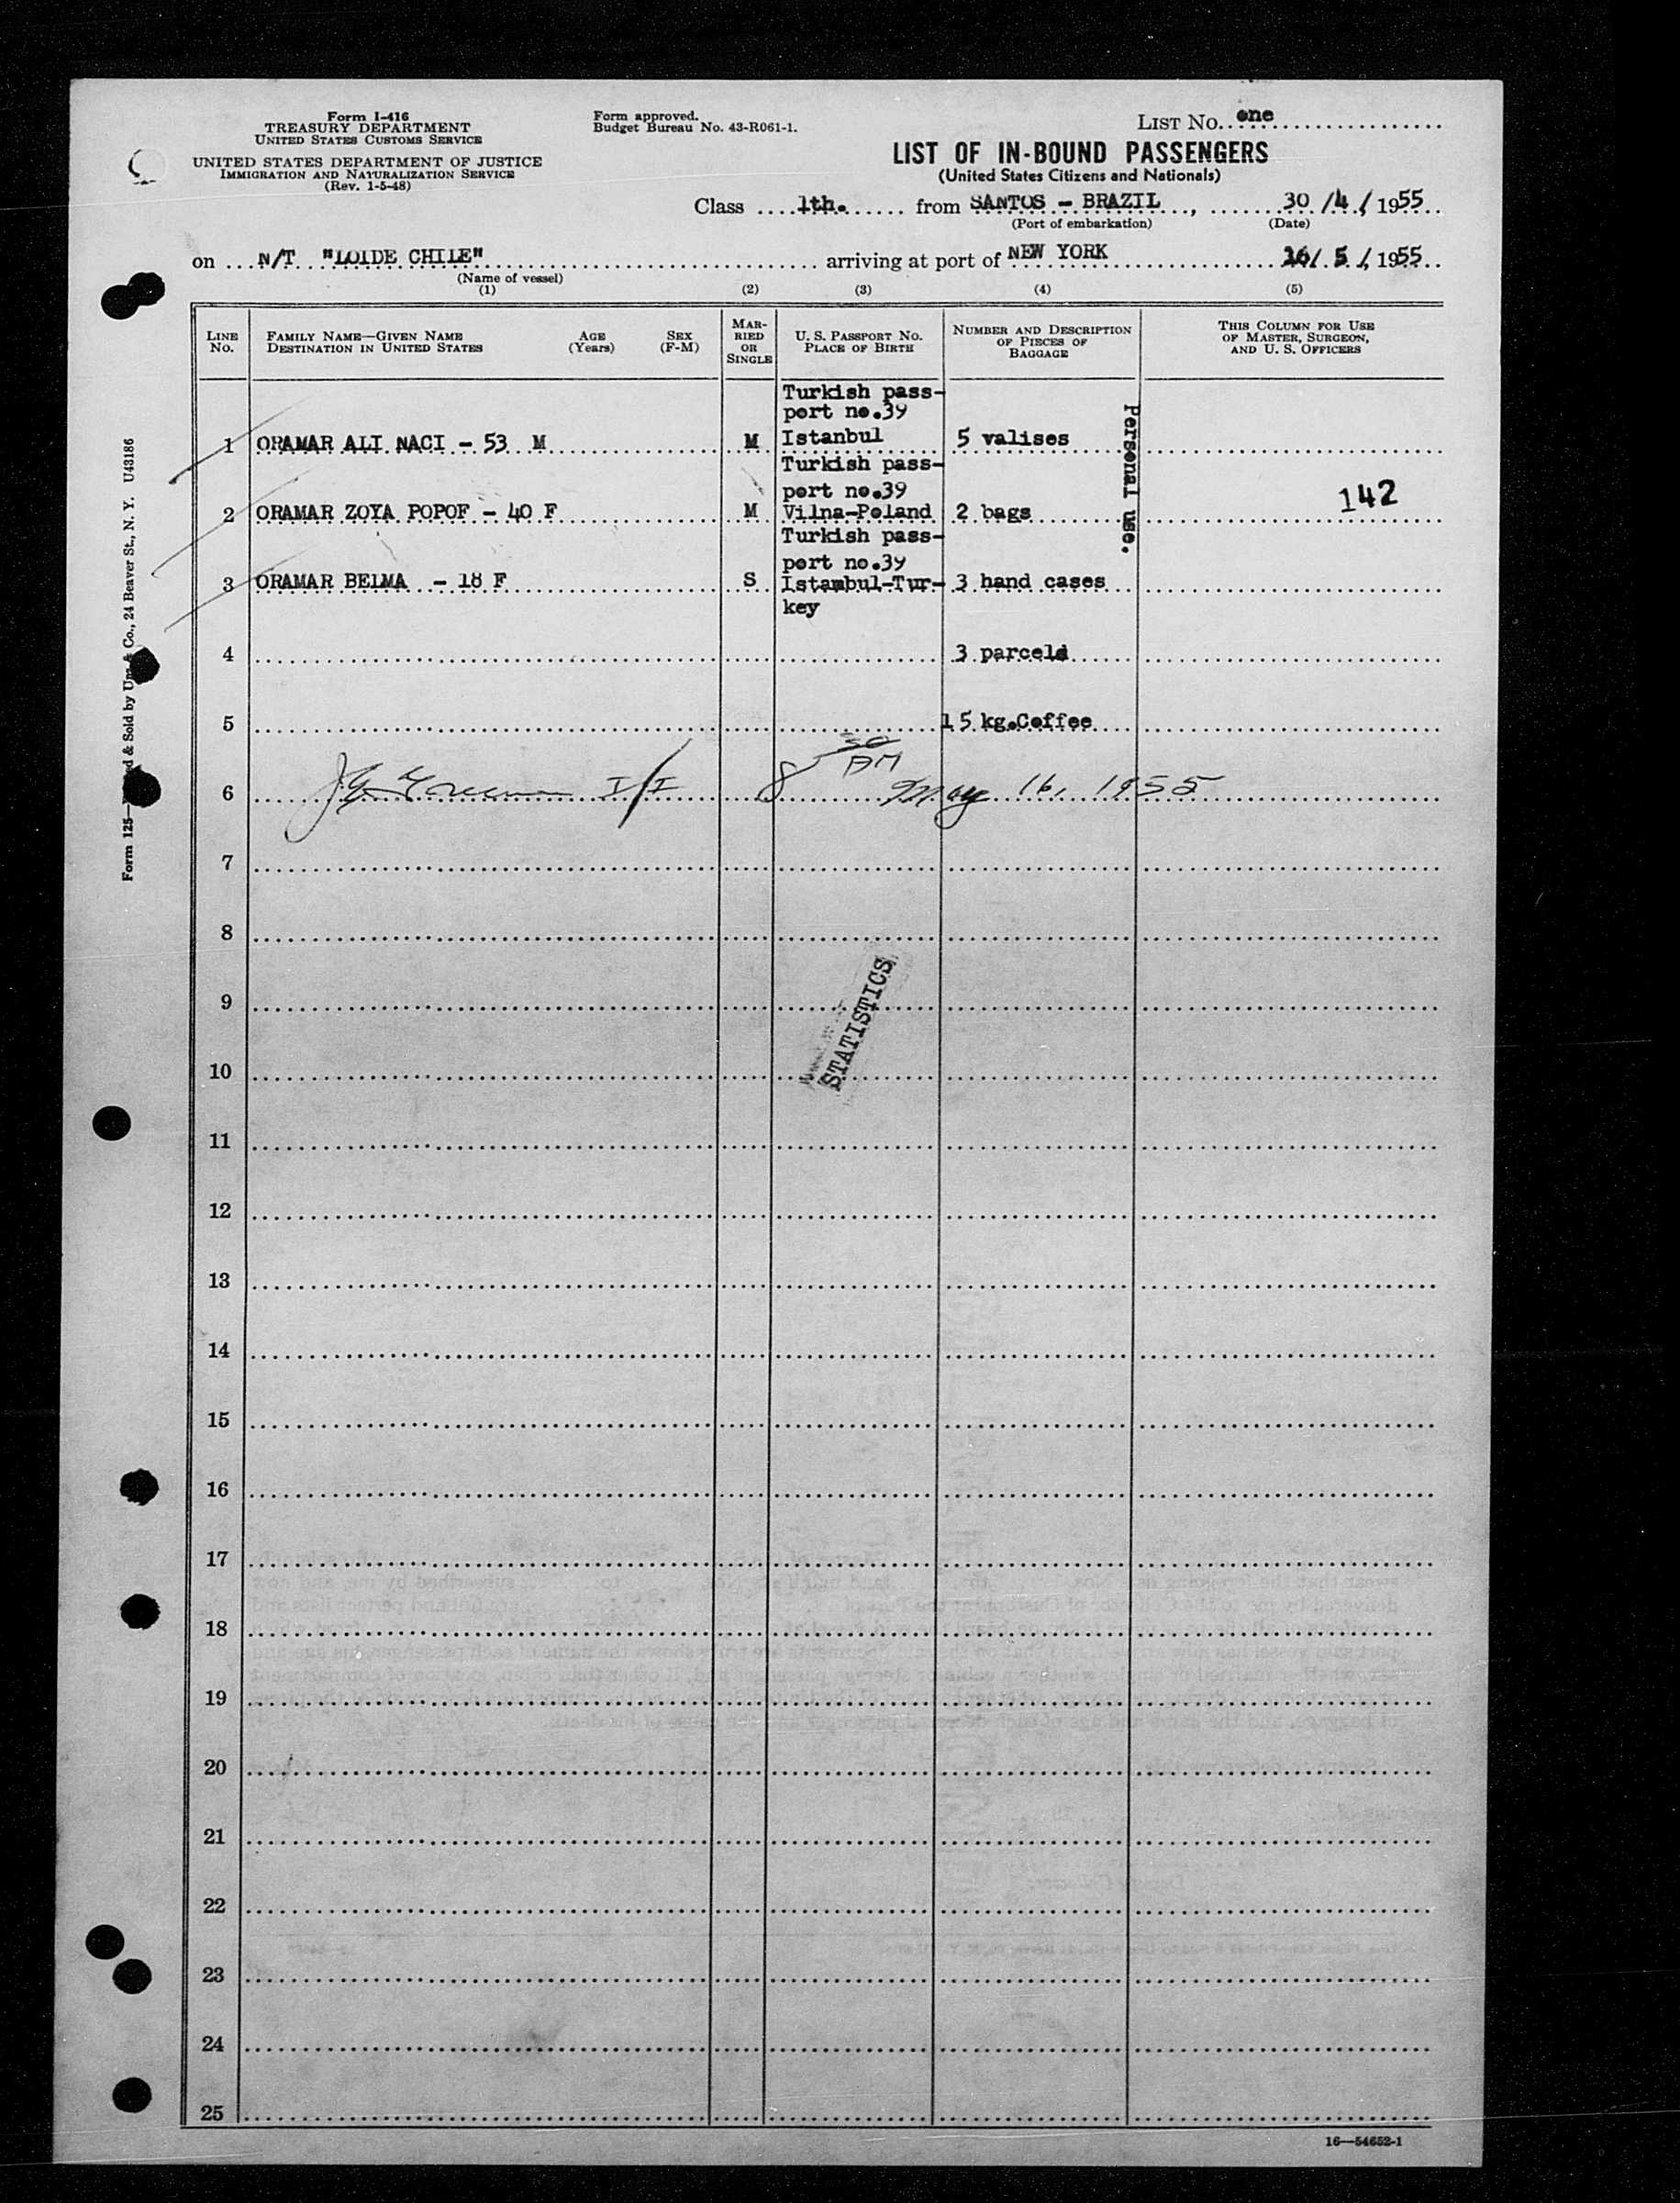 Form I-416
TREASURY DEPARTMENT
UNITED STATES CUSTOMS SERVICE
UNITED STATES DEPARTMENT OF JUSTICE
IMMIGRATION AND NATURALIZATION SERVICE
(Rev. 1-5-48)
Form approved.
Budget Bureau No. 43-R061-1.
LIST No. one
LIST OF IN-BOUND PASSENGERS
(United States Citizens and Nationals)
Class 1th. from SANTOS - BRAZIL, 30/4/1955
(Port of embarkation) (Date)
on N/T "LOIDE CHILE" arriving at port of NEW YORK 16/5/1955
(Name of vessel)
(1) (2) (3) (4) (5)
LINE No.
FAMILY NAME—GIVEN NAME
DESTINATION IN UNITED STATES
AGE (Years)
SEX (F-M)
MARRIED OR SINGLE
U. S. PASSPORT No.
PLACE OF BIRTH
NUMBER AND DESCRIPTION OF PIECES OF BAGGAGE
THIS COLUMN FOR USE OF MASTER, SURGEON, AND U. S. OFFICERS
Turkish pass-
port no.39
1 ORAMAR ALI NACI - 53 M M Istanbul 5 valises
Turkish pass-
port no.39
2 ORAMAR ZOYA POPOF - 40 F M Vilna-Poland 2 bags 142
Turkish pass-
port no.39
3 ORAMAR BELMA - 18 F S Istambul-Tur- 3 hand cases
key
Personal use.
4 3 parcels
5 15 kg.Coffee
6 I/I 8 30 AM May 16, 1955
7
8
9
STATISTICS
10
11
12
13
14
15
16
17
18
19
20
21
22
23
24
25
16—54652-1
Form 125— & Sold by Co., 24 Beaver St., N. Y. U43186